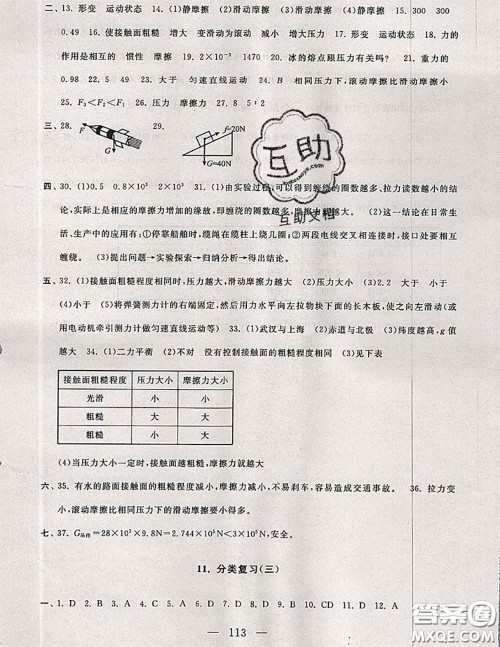 二、13. 形变 运动状态 14. (1)静摩擦 (2)滑动摩擦 (3)滚动摩擦 (4)静摩擦 15. 300 300
0.49 16. 使接触面粗糙 增大 变滑动为滚动 减小 增大压力 17. 形变 运动状态 18. 力的
作用是相互的 惯性 摩擦 19. 0.98 20. 冰的熔点跟压力有关吗? 21. 重力的
0.98 4.9 22. 95 23. 大于 匀速直线运动 24. B 相同压力下,滚动摩擦比滑动摩擦小
25. F₃<F₂<F₁ 26. 压力 摩擦力 27. 8 5∶2
三、28. F G 29. f=20N G=40N
四、30. (1)0.5 0.8×10³ 2×10³ 31. (1)由实验过程可以得到缠绕的圈数越多、拉力读数越小的结
论,实际上是相应的摩擦力增加的缘故,即缠绕的圈数越多,摩擦力越大。 (2)这一结论在日常生
活、生产中的应用有:①停靠船舶时,缆绳在柱上绕几圈;②两段电线交叉相连接时,接口处要相互
缠绕。 (3)提出问题→实验探索→归纳分析→得出结论
五、32. (1)接触面粗糙程度相同时,压力越大,滑动摩擦力越大 (2)小于 (3)2.2 大于 小于
(4)小于 (5)将弹簧测力计的右端固定,然后用力水平向左拉物块下面的长木板,使之向左滑动(或
用电动机牵引测力计做匀速直线运动等) 33. (1)武汉与上海 (2)赤道与北极 (3)纬度越高,g值
越大 34. (1)二力平衡 (2)不对 没有控制接触面的粗糙程度相同 (3)见下表
接触面粗糙程度 压力大小 摩擦力大小
光滑 小 小
粗糙 大 大
粗糙 小 大
(4)当压力大小一定时,接触面越粗糙,摩擦力就越大
六、35. 有水的路面接触面的粗糙程度减小,摩擦力减小,不易刹车,容易造成交通事故。 36. 拉力变
小、滚动摩擦比相同压力下的滑动摩擦要小得多。
七、37. G构件=28×10³×9.8N=2.744×10⁵N<3×10⁵N,安全。
11. 分类复习(三)
一、1. D 2. A 3. D 4. D 5. B 6. D 7. B 8. D 9. B 10. CD 11. D 12. A
113
互助
互助文档
答案圈
MXQE.COM